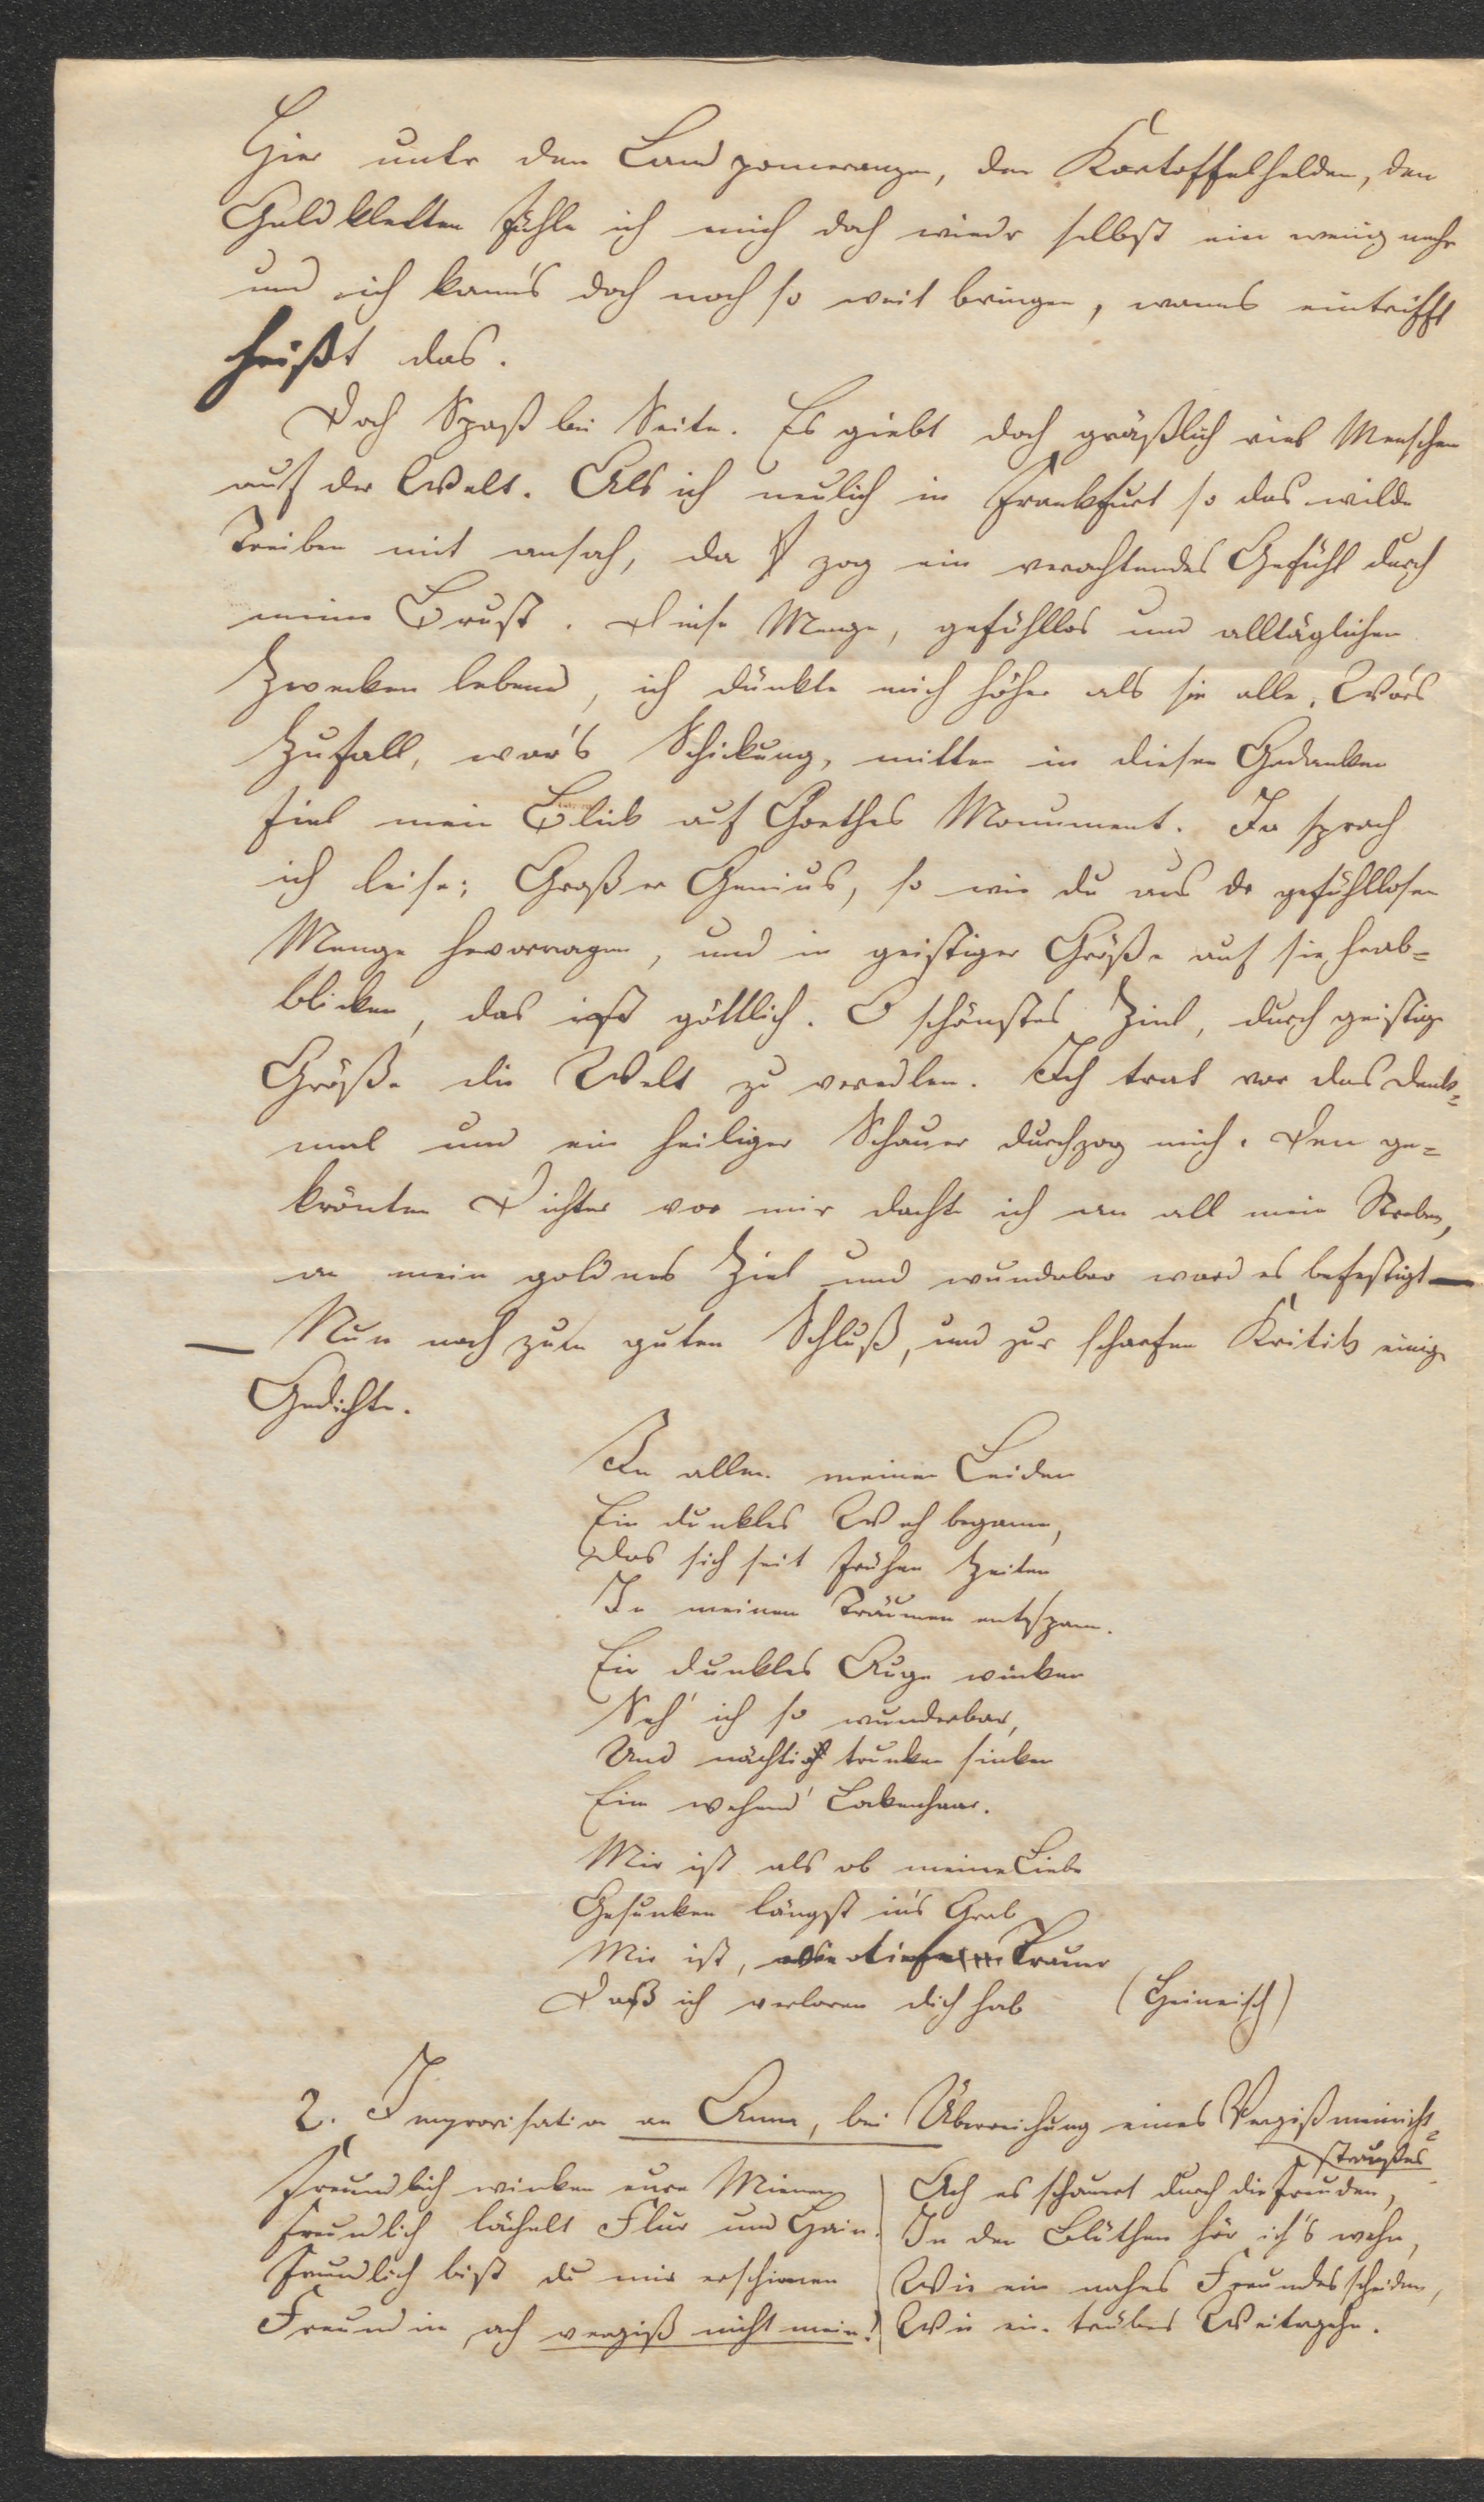 Hier unter den Landpomeranzen, den Kartoffelhelden, den
Geldkletten fühle ich mich doch wieder selbst ein wenig mehr
und ich kann's doch noch so weit bringen, wanns eintrifft
heißt das.
Doch Spaß bei Seite. Es giebt doch gräßlich viel Menschen
auf der Welt. Als ich neulich in Frankfurt so das wilde
Treiben mit ansah, da zog ein verachtendes Gefühl durch
meine Brust. Diese Menge, gefühllos und alltäglichen
Zwecken lebend, ich dünkte mich höher als sie alle. War's
Zufall, war's Schickung, mitten in diesen Gedanken
fiel mein Blick auf Goethes Monument. Da sprach
ich leise: Großer Genius, so wie du aus der gefühllosen
Menge hervorragen, und in geistiger Größe auf sie herab-
blicken, das ist göttlich. O schönstes Ziel, durch geistige
Größe die Welt zu veredlen. Ich trat vor das Denk-
mal und ein heiliger Schauer durchzog mich. Den ge-
krönten Dichter vor mir dacht ich an all mein Streben,
an mein goldnes Ziel und wunderbar ward es befestigt —
— Nun noch zum guten Schluß, und zur scharfen Kritik einige
Gedichte.
In allen meinen Leiden
Ein dunkles Weh begann,
Das sich seit frühen Zeiten
In meinen Träumen entspann.
Ein dunkles Auge winken
Seh' ich so wunderbar,
Und nächtich trunken sinken
Ein wehend' Lockenhaar.
Mir ist als ob meine Liebe
Gesunken längst in's Grab
Mir ist, Trauer
Daß ich verloren dich hab (Heineisch)
2. Improvisation an Anna, bei Überreichung eines Vergißmeinicht-
straußes
Freundlich winken eure Mienen
Freundlich lächelt Flur und Hain.
Freundlich bist du mir erschienen
Freundin ach vergiß nicht mein!
Ach es schauert durch die Freuden,
In den Blüthen hör ich's wehn,
Wie ein nahes Freundesscheiden,
Wie ein trübes Weitergehn.